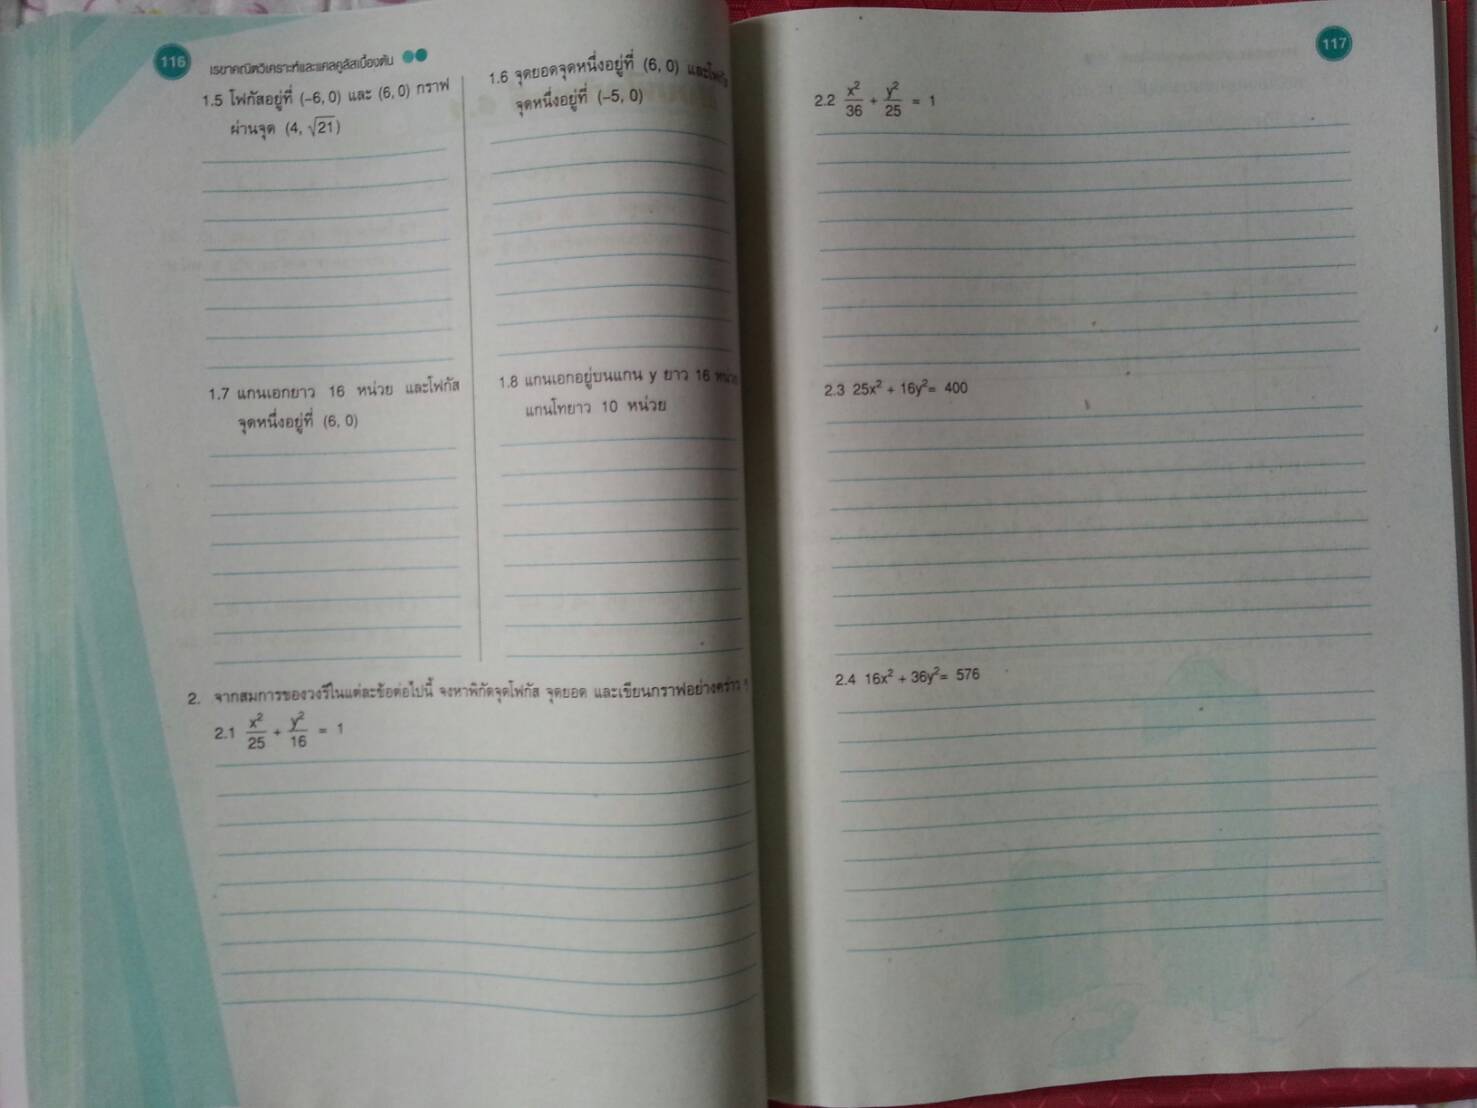 116 เรขาคณิตวิเคราะห์และแคลคูลัสเบื้องต้น
1.5 โฟกัสอยู่ที่ (–6, 0) และ (6, 0) กราฟ
ผ่านจุด (4, √21)
1.6 จุดยอดจุดหนึ่งอยู่ที่ (6, 0) และโฟกัส
จุดหนึ่งอยู่ที่ (–5, 0)
1.7 แกนเอกยาว 16 หน่วย และโฟกัส
จุดหนึ่งอยู่ที่ (6, 0)
1.8 แกนเอกอยู่บนแกน y ยาว 16 หน่วย
แกนโทยาว 10 หน่วย
2. จากสมการของวงรีในแต่ละข้อต่อไปนี้ จงหาพิกัดจุดโฟกัส จุดยอด และเขียนกราฟอย่างคร่าว ๆ
2.1 x²/25 + y²/16 = 1
117
2.2 x²/36 + y²/25 = 1
2.3 25x² + 16y² = 400
2.4 16x² + 36y² = 576